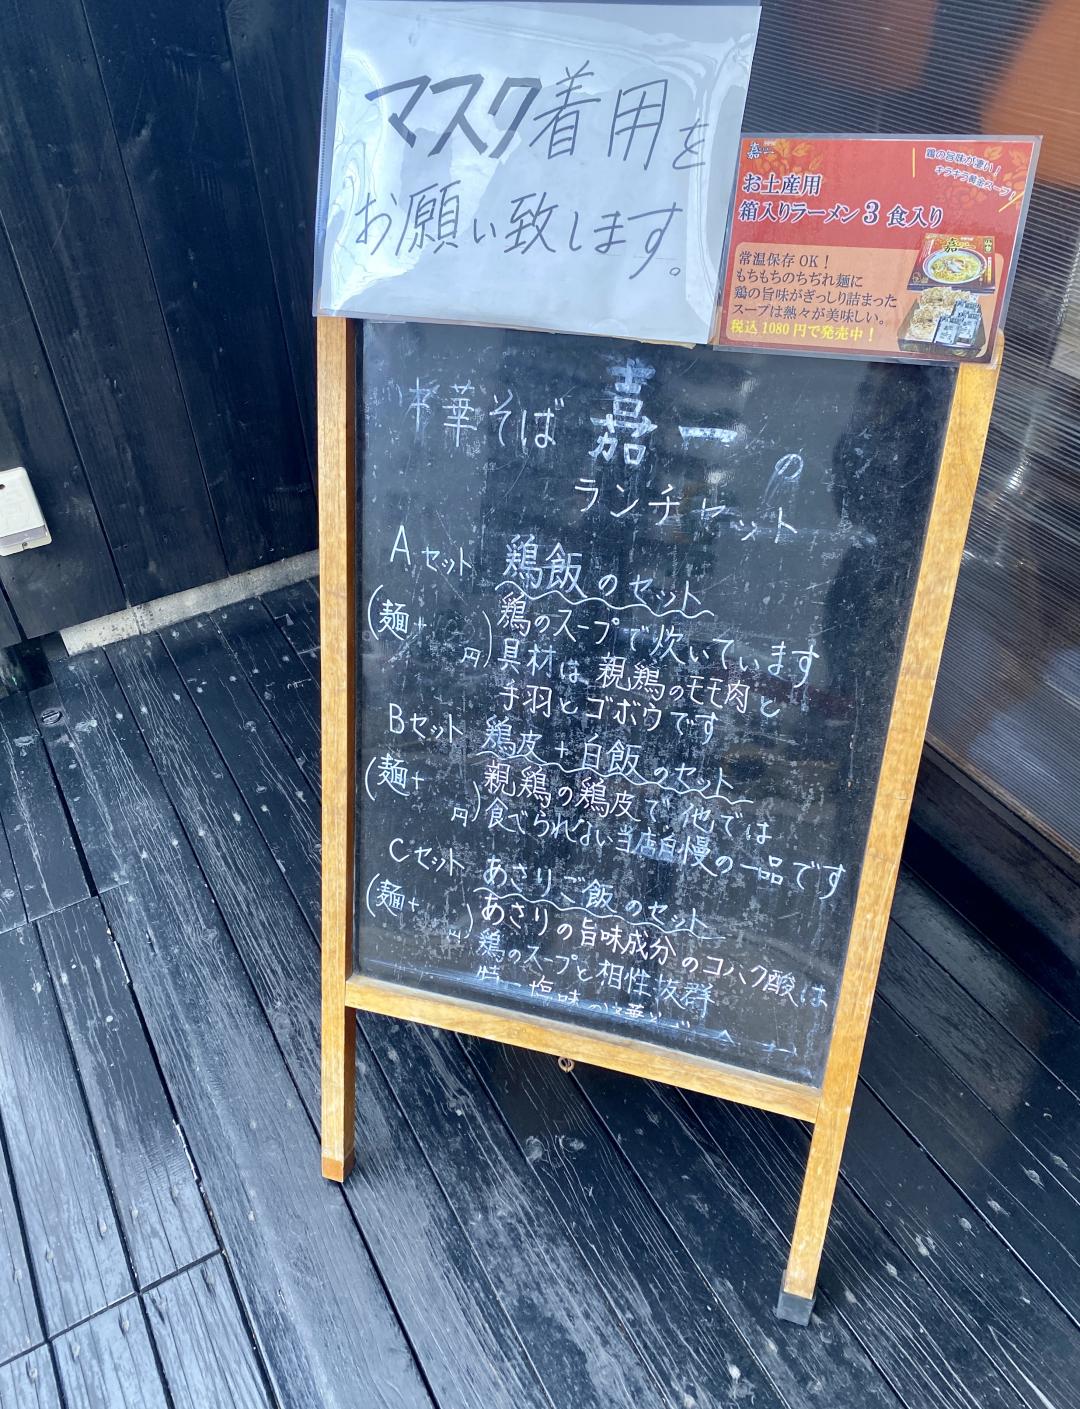 マスク着用を
お願い致します。
嘉一
鶏の旨味が凄い!
キラキラ黄金スープ!
お土産用
箱入りラーメン3食入り
常温保存OK!
もちもちのちぢれ麺に
鶏の旨味がぎっしり詰まった
スープは熱々が美味しい。
税込1080円で発売中!
華そば 嘉一の
ランチセット
Aセット 鶏飯のセット
(麺+ 円) 鶏のスープで炊いています
具材は親鶏のモモ肉と
手羽とゴボウです
Bセット 鶏皮+白飯のセット
(麺+ 円) 親鶏の鶏皮で他では
食べられない当店自慢の一品です
Cセット あさりご飯のセット
(麺+ 円) あさりの旨味成分のコハク酸は
鶏のスープと相性抜群
塩味の